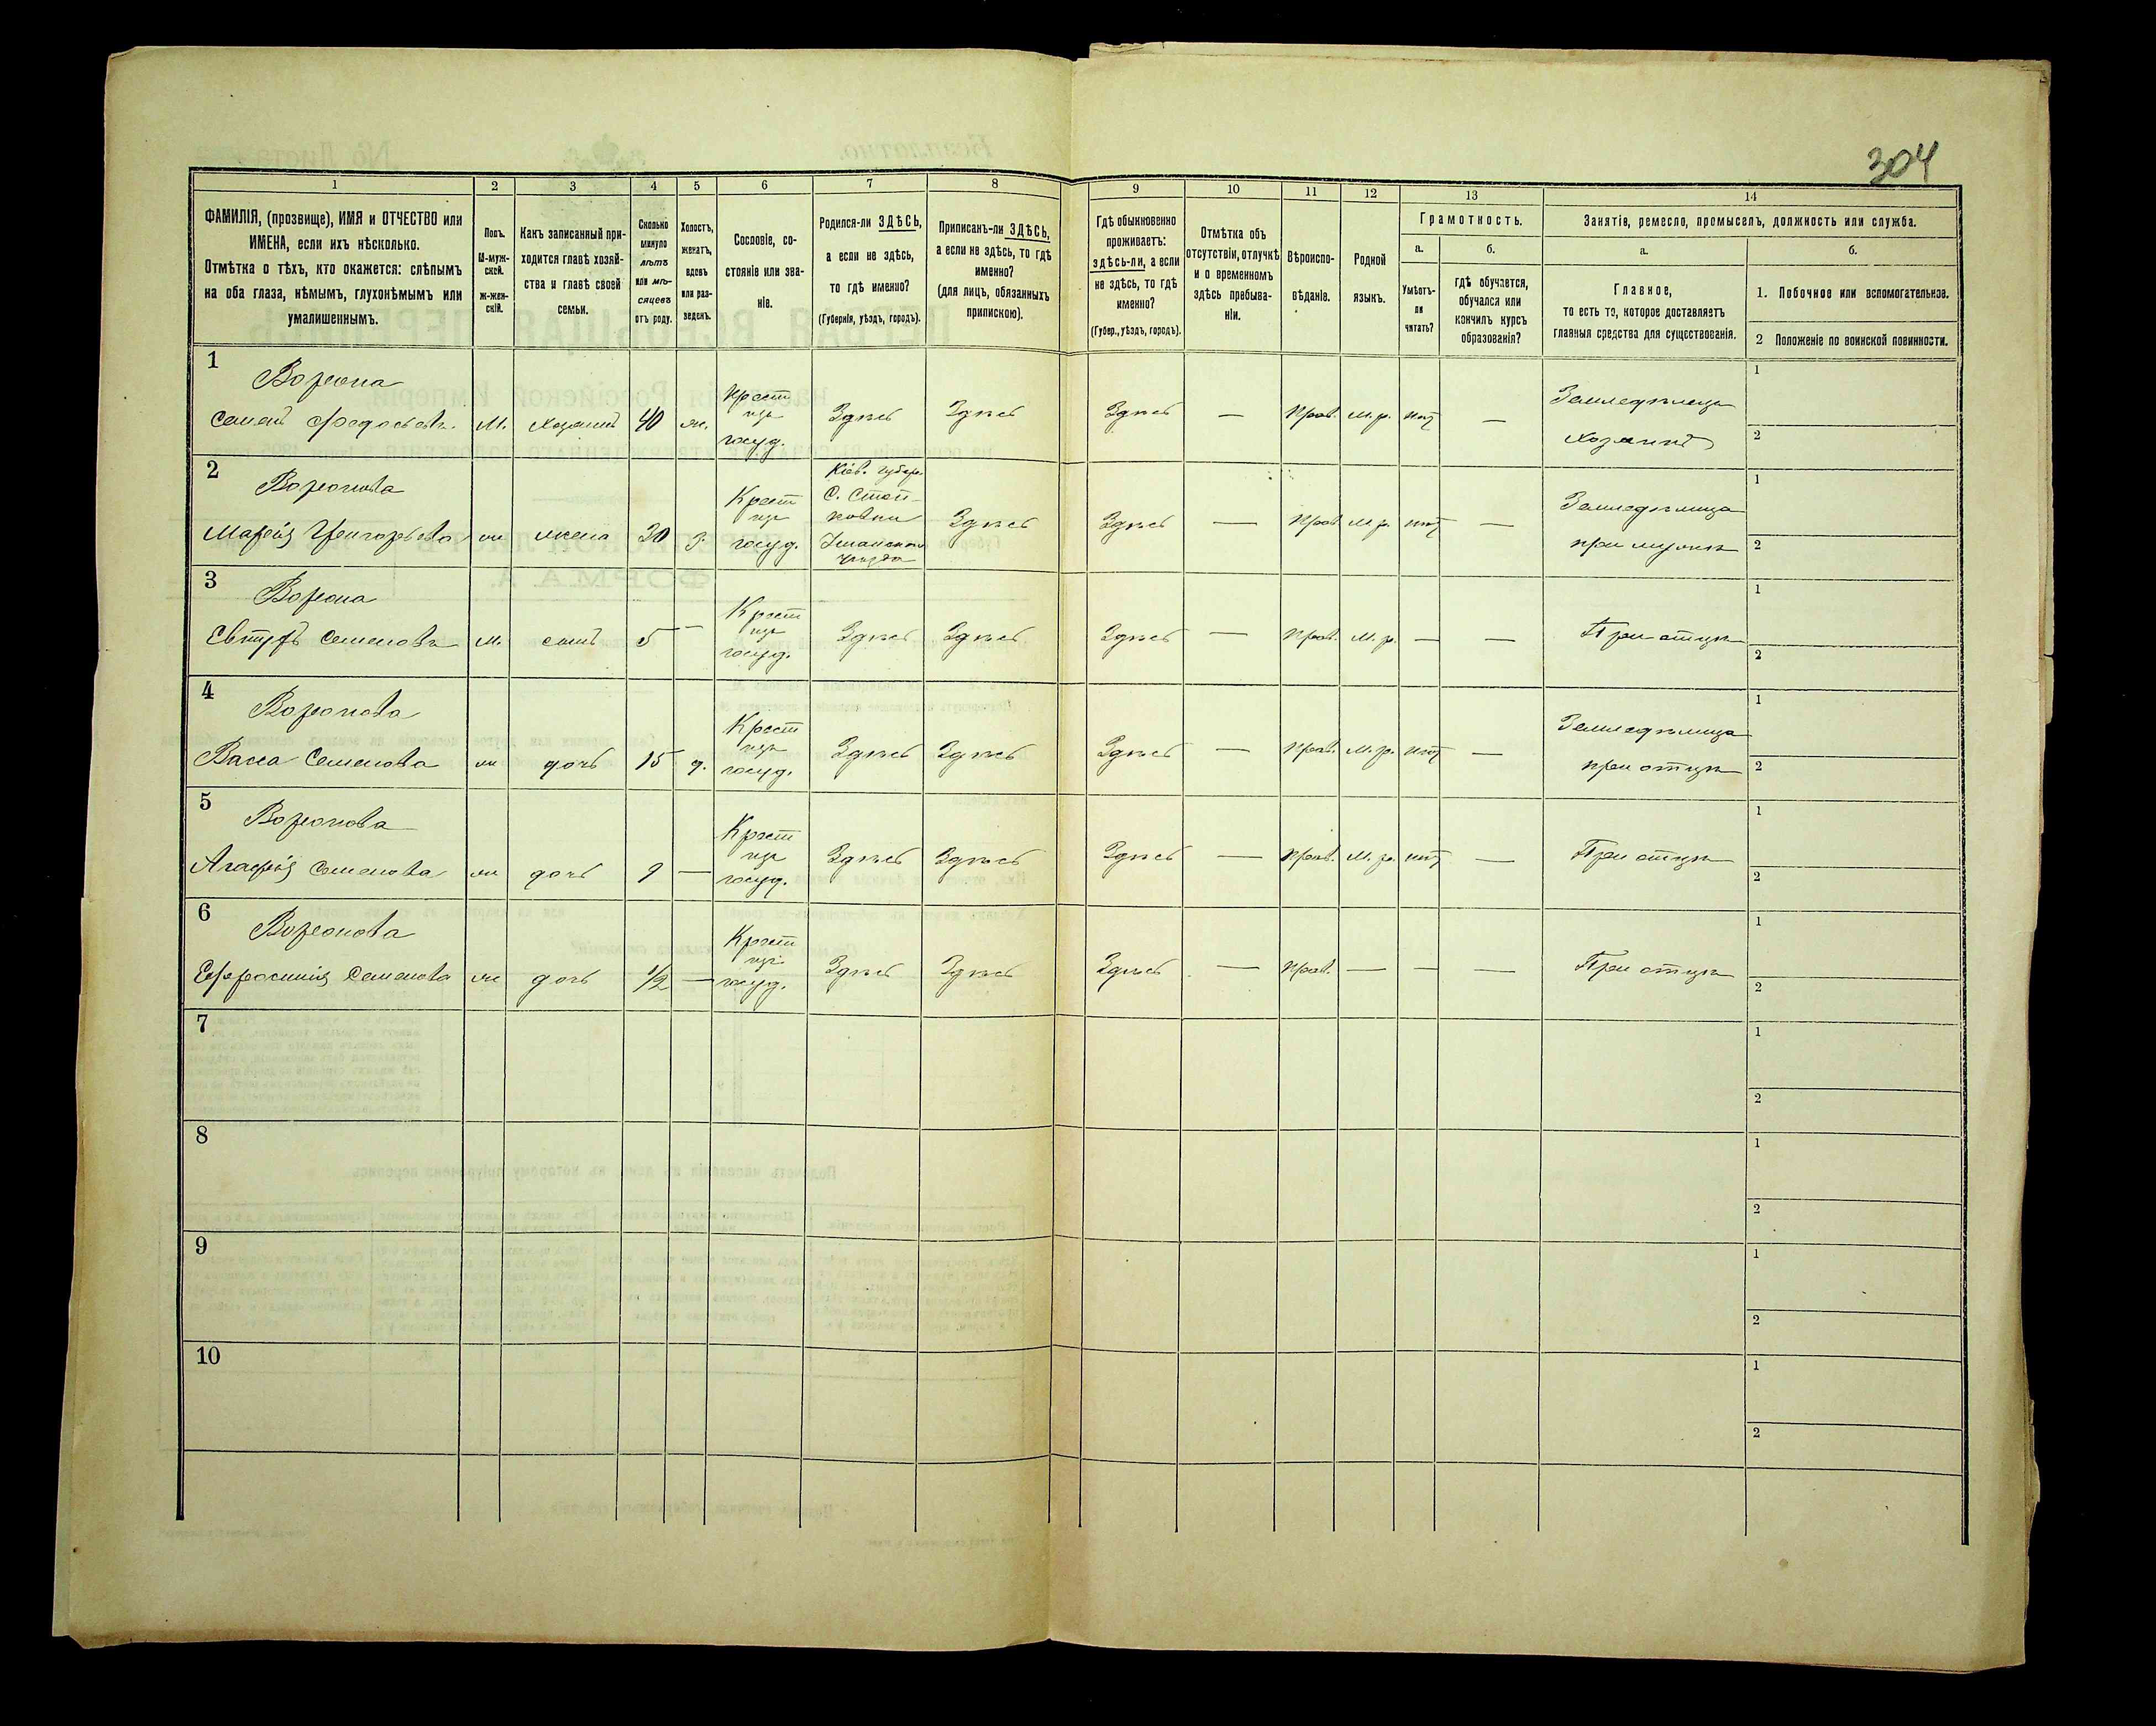 304
1 2 3 4 5 6 7 8 9 10 11 12 13 14
ФАМИЛІЯ, (прозвище), ИМЯ и ОТЧЕСТВО или
ИМЕНА, если ихъ нѣсколько.
Отмѣтка о тѣхъ, кто окажется: слѣпымъ
на оба глаза, нѣмымъ, глухонѣмымъ или
умалишеннымъ.
Полъ.
М-муж-
ской.
ж-жен-
скій.
Какъ записанный при-
ходится главѣ хозяй-
ства и главѣ своей
семьи.
Сколько
минуло
лѣтъ
или мѣ-
сяцевъ
отъ роду.
Холостъ,
женатъ,
вдовъ
или раз-
веденъ.
Сословіе, со-
стояніе или зва-
ніе.
Родился-ли ЗДѢСЬ,
а если не здѣсь,
то гдѣ именно?
(Губернія, уѣздъ, городъ).
Приписанъ-ли ЗДѢСЬ,
а если не здѣсь, то гдѣ
именно?
(для лицъ, обязанныхъ
припискою).
Гдѣ обыкновенно
проживаетъ:
здѣсь-ли, а если
не здѣсь, то гдѣ
именно?
(Губер., уѣздъ, городъ).
Отмѣтка объ
отсутствіи, отлучкѣ
и о временномъ
здѣсь пребыва-
ніи.
Вѣроиспо-
вѣданіе.
Родной
языкъ.
Грамотность.
а.
Умѣетъ-
ли
читать?
б.
гдѣ обучается,
обучался или
кончилъ курсъ
образованія?
Занятіе, ремесло, промыселъ, должность или служба.
а.
Главное,
то есть то, которое доставляетъ
главныя средства для существованія.
б.
1. Побочное или вспомогательное.
2 Положеніе по воинской повинности.
1
Ворона
Семенъ Федосіевъ. М. Хозяинъ 40 ж.
Крест
изъ
госуд.
Здѣсь Здѣсь Здѣсь — Прав. М. р. нѣтъ —
Земледѣлецъ
Хозяинъ
1
2
2
Воронова
Марія Григорьева ж жена 30 з.
Крест
изъ
госуд.
Кіев. губер.
С.
Уманскаго
уѣзда
Здѣсь Здѣсь — Прав М. р. нѣтъ —
Земледѣлица
при мужѣ
1
2
3
Ворона
Евтухъ Семеновъ М. сынъ 5 —
Крест
изъ
госуд.
Здѣсь Здѣсь Здѣсь — Прав. М. р. — —
При отцѣ
1
2
4
Воронова
Васса Семенова ж дочь 15 д.
Крест
изъ
госуд.
Здѣсь Здѣсь Здѣсь — Прав. М. р. нѣтъ —
Земледѣлица
при отцѣ
1
2
5
Воронова
Агафія Семенова ж дочь 9 —
Крест
изъ
госуд.
Здѣсь Здѣсь Здѣсь — Прав. М. р. нѣтъ —
При отцѣ
1
2
6
Воронова
Ефросинія Семенова ж дочь 1/2 —
Крест
изъ
госуд.
Здѣсь Здѣсь Здѣсь — Прав. — — —
При отцѣ
1
2
7
1
2
8
1
2
9
1
2
10
1
2